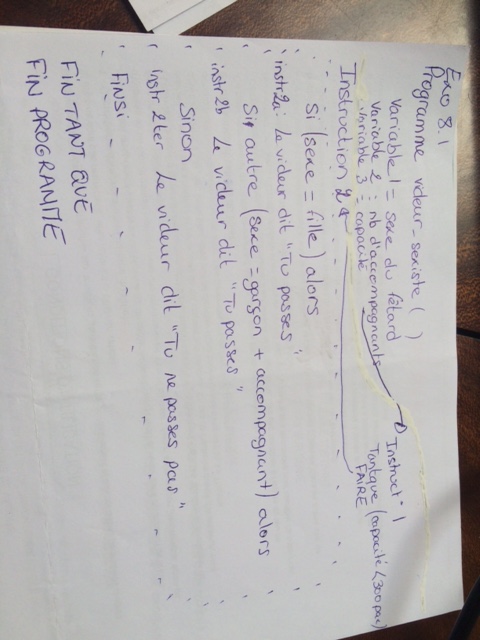 Exo 8.1
Programme videur_sexiste ( )
Variable 1 = sexe du fêtard
variable 2 : nb d'accompagnants
variable 3 = capacité
① Instruct° 1
Tantque (capacité < 300 pax)
FAIRE
Instruction 2
Si (sexe = fille) alors
instr2a: Le videur dit "Tu passes"
Sin autre (sexe = garçon + accompagnant) alors
instr2b Le videur dit "Tu passes"
Sinon
instr2ter Le videur dit "Tu ne passes pas"
FINSI
FIN TANT QUE
FIN PROGRAMME